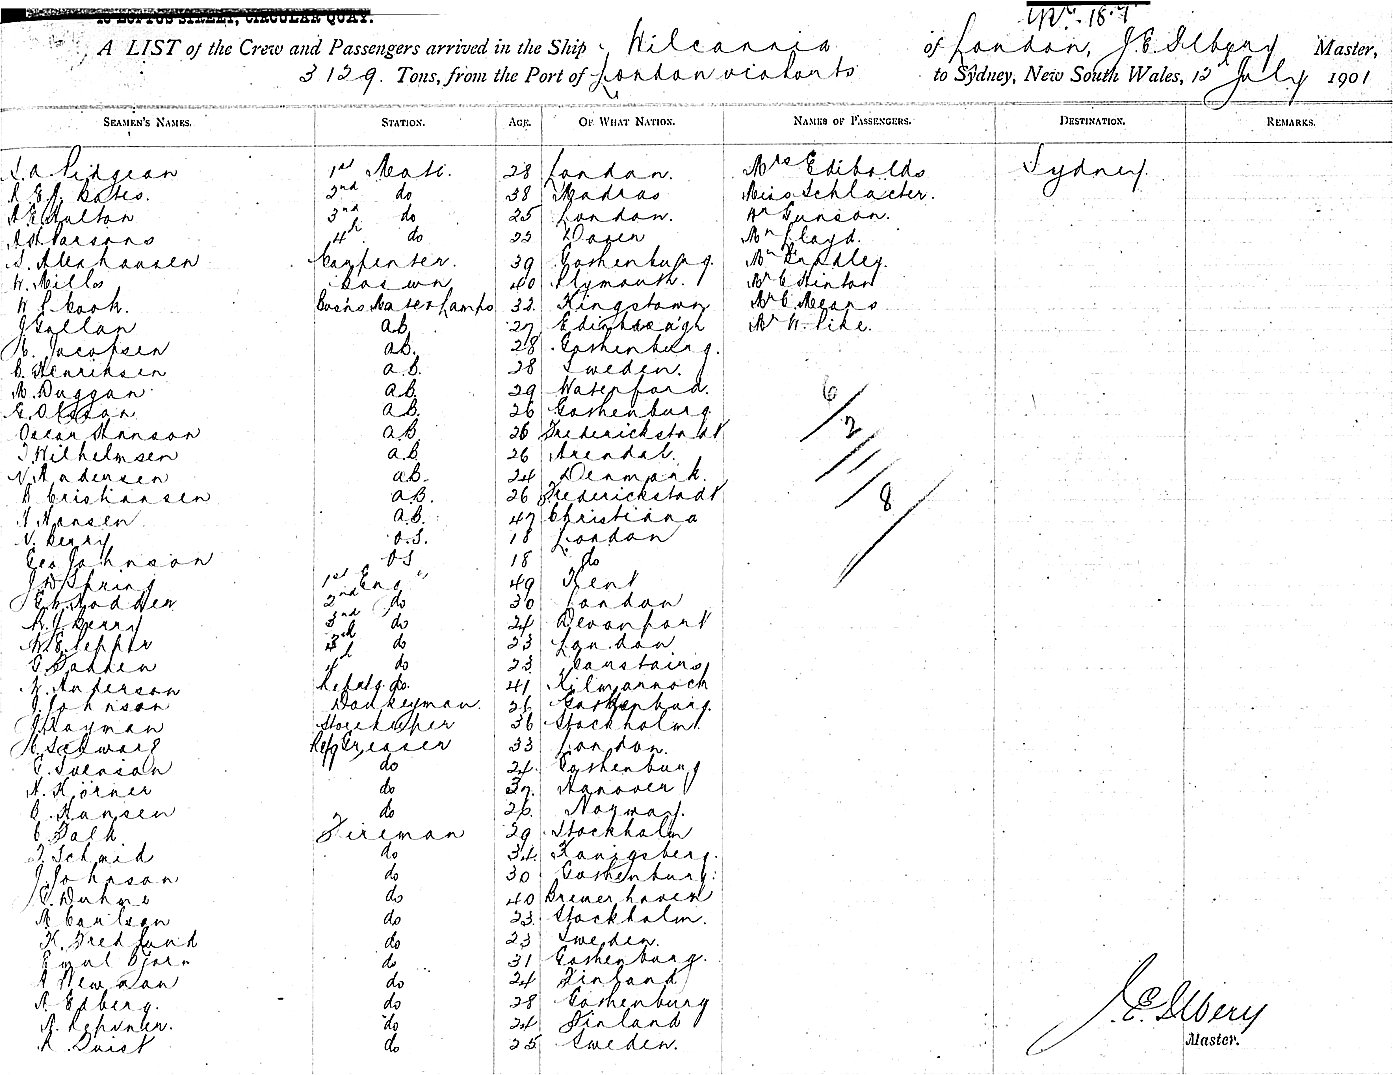 10 LOFTUS STREET, CIRCULAR QUAY.
A LIST of the Crew and Passengers arrived in the Ship Wilcannia of London, J. E. Ilbery Master,
3129 Tons, from the Port of London via ports to Sydney, New South Wales, 12 July 1901
SEAMEN'S NAMES. STATION. AGE. OF WHAT NATION. NAMES OF PASSENGERS. DESTINATION. REMARKS.
S. A. Pidgeon 1st Mate. 28 London. Mrs Sydney.
Bates. 2nd do 38 Madras Miss Schlacter.
3rd do 25 London. Gunson.
Parsons 4th do 22 Dover Mr Lloyd.
Carpenter. 39 Gothenburg. Mr
W. Mills Boswn 40 Plymouth. Mr C Hinton
W Cook. Bos'ns Mate & Lamps 32 Kingstown Mr C Means
J Gallan ab 27 Edinborough Mr W. Pike.
Jacobsen aB. 28 Gothenburg.
C. Henriksen a.B. 28 Sweden.
M. Duggan a.B. 29 Waterford.
G. Olsson aB. 26 Gothenburg 6
Oscar Hanson aB 26 Frederickstadt 2
Wilhelmsen aB 26 Arendal. 11
N Andersen aB. 24 Denmark. 8
Cristiansen aB. 26 Frederickstadt
Hansen a.B. 47 Christiana
Berry o.S. 18 London
Geo Johnson OS 18 do
J W Spring 1st Eng " 49 Kent
2nd do 30 London
Berry 3rd do 24 Devonport
W. E. Pepper 4th do 23 London
do 23 Carstairs
W. Anderson Refrig. do. 41 Kilmarnock
J. Johnson Donkeyman. 26 Gothenburg.
J Hayman Storekeeper 36 Stockholm
Greaser 33 London.
E. Svenson do 24 Gothenburg
H. Körner do 37 Hanover
O. Hansen do 26 Norway.
C. Falk Fireman 29 Stockholm
Schmid do 34 Konigsberg.
J. Johnson do 30 Gothenburg.
do 40 Bremerhaven
Carlson do 23 Stockholm.
K. Fredlund do 23 Sweden.
Emal Bjorn do 31 Gothenburg.
A Newman do 24 Finland
A. Edberg. do 28 Gothenburg
do 24 Finland
Quist do 25 Sweden.
J. E. Ilbery
Master.